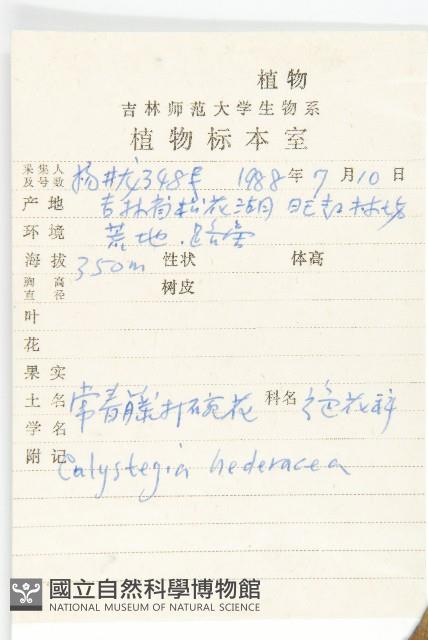 植物
吉林师范大学生物系
植物标本室
采集人及号数 348号 1988年7月10日
产地 吉林省松花湖 林场
环境 荒地.路旁
海拔 350m 性状 体高
胸高直径 树皮
叶
花
果实
土名 常春藤打碗花 科名 花科
学名
附记 Calystegia hederacea
國立自然科學博物館
NATIONAL MUSEUM OF NATURAL SCIENCE